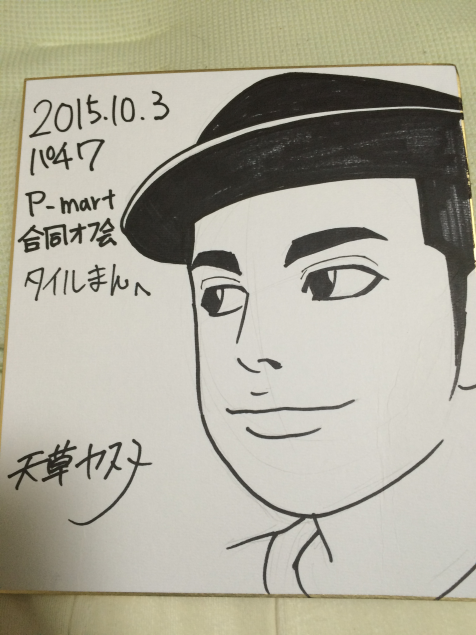 2015.10.3
パチ7
P-mart
合同オフ会
タイルまんへ
天草ヤスヌ